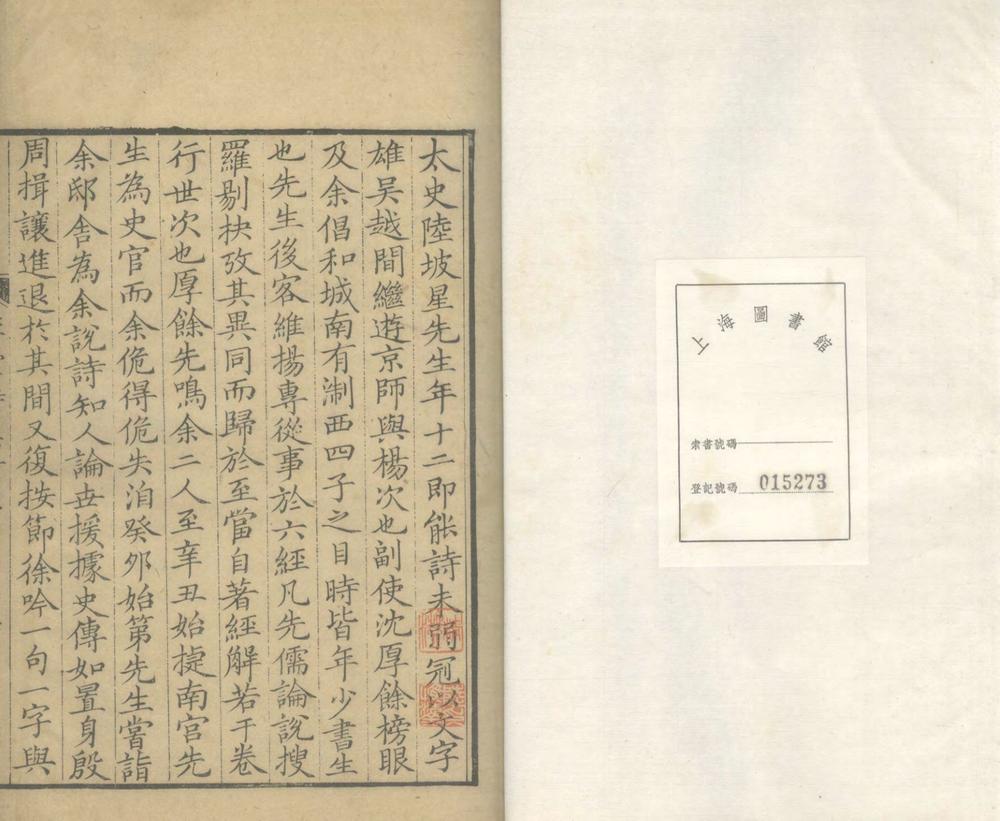 上海圖書館
索書號碼
登記號碼 015273
太史陸坡星先生年十二即能詩未弱冠以文字
雄吴越間繼遊京師與楊次也副使沈厚餘榜眼
及余倡和城南有淛西四子之目時皆年少書生
也先生後客維揚專從事於六經凡先儒論說搜
羅剔抉攷其異同而歸於至當自著經解若干卷
行世次也厚餘先鳴余二人至辛丑始捷南宫先
生為史官而余佹得佹失洎癸夘始第先生嘗詣
余邸舎為余說詩知人論世援據史傳如置身殷
周揖讓進退於其間又復按節徐吟一句一字與